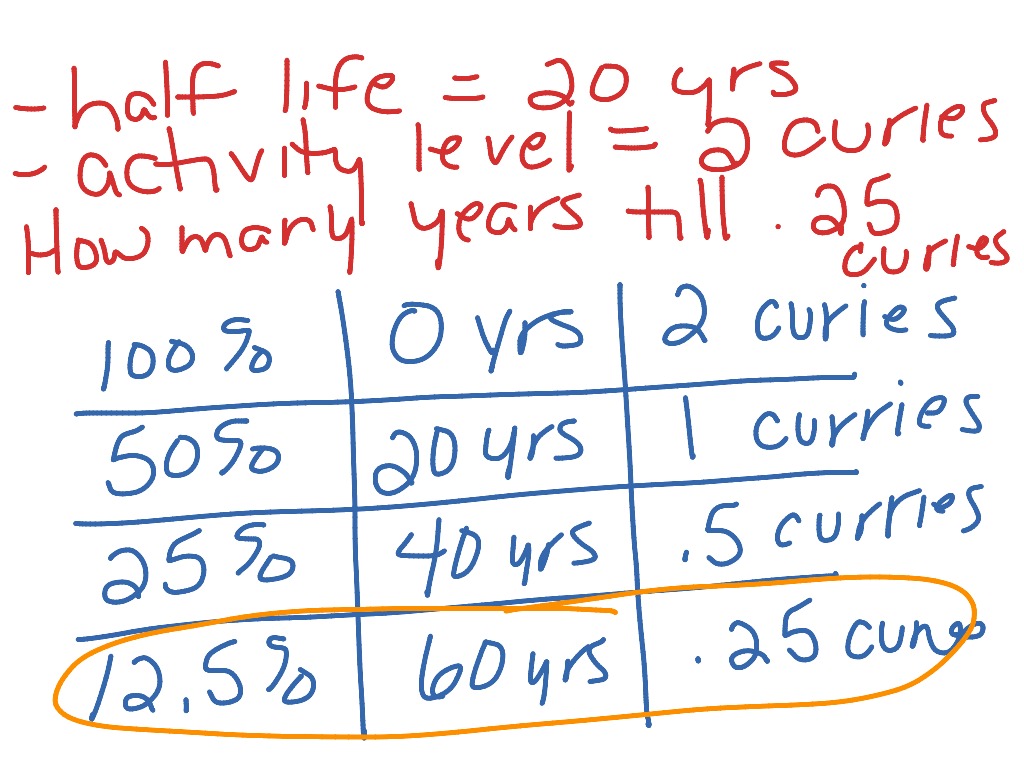 - half life = 20 yrs
- activity level = 2 curies
How many years till .25
curies
100% 0 yrs 2 curies
50% 20 yrs 1 curries
25% 40 yrs .5 curries
12.5% 60 yrs .25